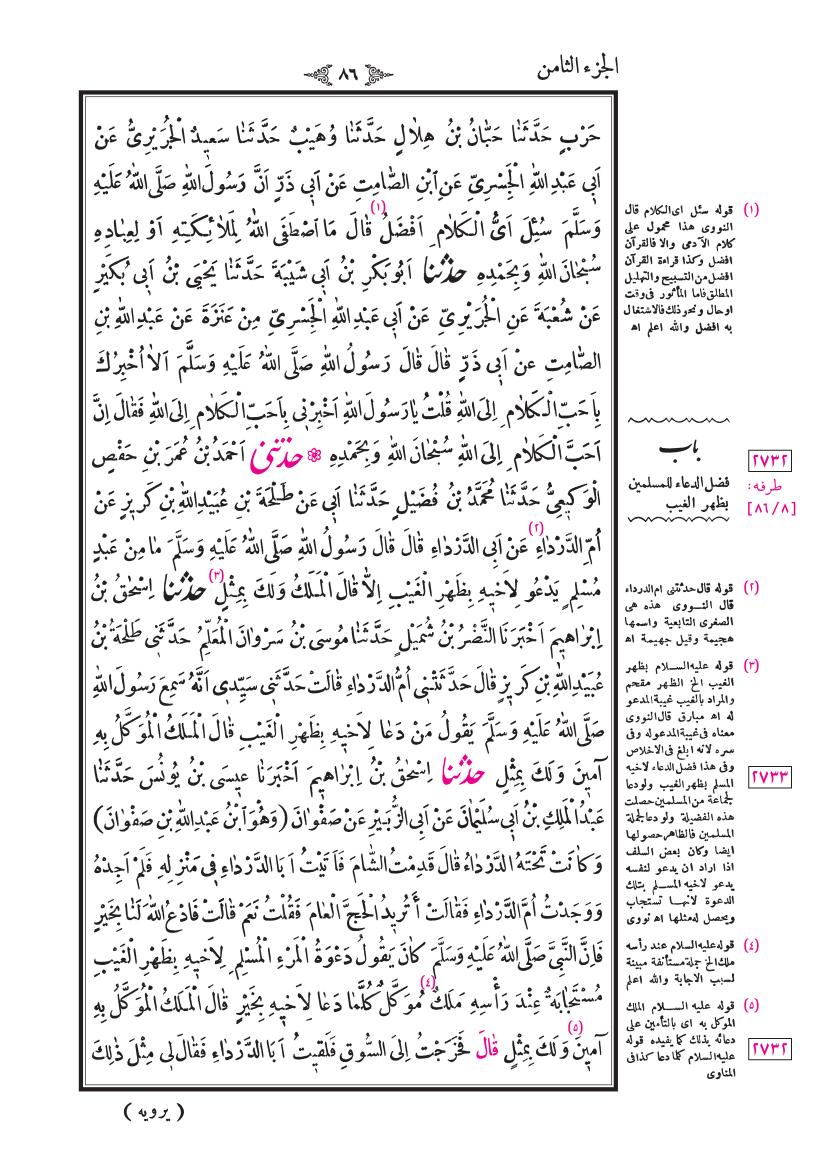 الجزء الثامن
٨٦
حَرْبٍ حَدَّثَنَا حَبَّانُ بْنُ هِلَالٍ حَدَّثَنَا وُهَيْبٌ حَدَّثَنَا سَعِيدٌ الْجُرَيْرِيُّ عَنْ
اَبِي عَبْدِاللّٰهِ الْجَسْرِيِّ عَنِ ابْنِ الصَّامِتِ عَنْ اَبِي ذَرٍّ اَنَّ رَسُولَ اللّٰهِ صَلَّى اللّٰهُ عَلَيْهِ
وَسَلَّمَ سُئِلَ اَىُّ الْكَلَامِ اَفْضَلُ (١) قَالَ مَا اصْطَفَى اللّٰهُ لِمَلَائِكَتِهِ اَوْ لِعِبَادِهِ
سُبْحَانَ اللّٰهِ وَبِحَمْدِهِ حَدَّثَنَا اَبُو بَكْرِ بْنُ اَبِي شَيْبَةَ حَدَّثَنَا يَحْيَى بْنُ اَبِي بُكَيْرٍ
عَنْ شُعْبَةَ عَنِ الْجُرَيْرِيِّ عَنْ اَبِي عَبْدِاللّٰهِ الْجَسْرِيِّ مِنْ عَنَزَةَ عَنْ عَبْدِاللّٰهِ بْنِ
الصَّامِتِ عَنْ اَبِي ذَرٍّ قَالَ قَالَ رَسُولُ اللّٰهِ صَلَّى اللّٰهُ عَلَيْهِ وَسَلَّمَ اَلَا اُخْبِرُكَ
بِاَحَبِّ الْكَلَامِ اِلَى اللّٰهِ قُلْتُ يَا رَسُولَ اللّٰهِ اَخْبِرْنِي بِاَحَبِّ الْكَلَامِ اِلَى اللّٰهِ فَقَالَ اِنَّ
اَحَبَّ الْكَلَامِ اِلَى اللّٰهِ سُبْحَانَ اللّٰهِ وَبِحَمْدِهِ ۞ حَدَّثَنِي اَحْمَدُ بْنُ عُمَرَ بْنِ حَفْصٍ
الْوَكِيعِيُّ حَدَّثَنَا مُحَمَّدُ بْنُ فُضَيْلٍ حَدَّثَنَا اَبِي عَنْ طَلْحَةَ بْنِ عُبَيْدِاللّٰهِ بْنِ كَرِيزٍ عَنْ
اُمِّ الدَّرْدَاءِ (٢) عَنْ اَبِي الدَّرْدَاءِ قَالَ قَالَ رَسُولُ اللّٰهِ صَلَّى اللّٰهُ عَلَيْهِ وَسَلَّمَ مَا مِنْ عَبْدٍ
مُسْلِمٍ يَدْعُو لِاَخِيهِ بِظَهْرِ الْغَيْبِ اِلَّا قَالَ الْمَلَكُ وَلَكَ بِمِثْلٍ (٣) حَدَّثَنَا اِسْحٰقُ بْنُ
اِبْرَاهِيمَ اَخْبَرَنَا النَّضْرُ بْنُ شُمَيْلٍ حَدَّثَنَا مُوسَى بْنُ سَرْوَانَ الْمُعَلِّمُ حَدَّثَنِي طَلْحَةُ بْنُ
عُبَيْدِاللّٰهِ بْنِ كَرِيزٍ قَالَ حَدَّثَتْنِي اُمُّ الدَّرْدَاءِ قَالَتْ حَدَّثَنِي سَيِّدِي اَنَّهُ سَمِعَ رَسُولَ اللّٰهِ
صَلَّى اللّٰهُ عَلَيْهِ وَسَلَّمَ يَقُولُ مَنْ دَعَا لِاَخِيهِ بِظَهْرِ الْغَيْبِ قَالَ الْمَلَكُ الْمُوَكَّلُ بِهِ
آمِينَ وَلَكَ بِمِثْلٍ حَدَّثَنَا اِسْحٰقُ بْنُ اِبْرَاهِيمَ اَخْبَرَنَا عِيسَى بْنُ يُونُسَ حَدَّثَنَا
عَبْدُ الْمَلِكِ بْنُ اَبِي سُلَيْمَانَ عَنْ اَبِي الزُّبَيْرِ عَنْ صَفْوَانَ (وَهُوَ ابْنُ عَبْدِاللّٰهِ بْنِ صَفْوَانَ)
وَكَانَتْ تَحْتَهُ الدَّرْدَاءُ قَالَ قَدِمْتُ الشَّامَ فَاَتَيْتُ اَبَا الدَّرْدَاءِ فِي مَنْزِلِهِ فَلَمْ اَجِدْهُ
وَوَجَدْتُ اُمَّ الدَّرْدَاءِ فَقَالَتْ أَتُرِيدُ الْحَجَّ الْعَامَ فَقُلْتُ نَعَمْ قَالَتْ فَادْعُ اللّٰهَ لَنَا بِخَيْرٍ
فَاِنَّ النَّبِيَّ صَلَّى اللّٰهُ عَلَيْهِ وَسَلَّمَ كَانَ يَقُولُ دَعْوَةُ الْمَرْءِ الْمُسْلِمِ لِاَخِيهِ بِظَهْرِ الْغَيْبِ
مُسْتَجَابَةٌ عِنْدَ رَأْسِهِ مَلَكٌ (٤) مُوَكَّلٌ كُلَّمَا دَعَا لِاَخِيهِ بِخَيْرٍ قَالَ الْمَلَكُ الْمُوَكَّلُ بِهِ
آمِينَ (٥) وَلَكَ بِمِثْلٍ قَالَ فَخَرَجْتُ اِلَى السُّوقِ فَلَقِيتُ اَبَا الدَّرْدَاءِ فَقَالَ لِي مِثْلَ ذٰلِكَ
( يرويه )
(١) قوله سئل اى الكلام قال
النووى هذا محمول على
كلام الآدمى والا فالقرآن
افضل وكذا قراءة القرآن
افضل من التسبيح والتهليل
المطلق فاما المأثور فى وقت
او حال ونحو ذلك فالاشتغال
به افضل والله اعلم اه
باب
فضل الدعاء للمسلمين
بظهر الغيب
٢٧٣٢
طرفه:
[٨٦/٨]
(٢) قوله قال حدثتنى ام الدرداء
قال النووى هذه هى
الصغرى التابعية واسمها
هجيمة وقيل جهيمة اه
(٣) قوله عليه السلام بظهر
الغيب الخ الظهر مقحم
والمراد بالغيب غيبة المدعو
له اه مبارق قال النووى
معناه فى غيبة المدعو له وفى
سره لانه ابلغ فى الاخلاص
وفى هذا فضل الدعاء لاخيه
المسلم بظهر الغيب ولو دعا
لجماعة من المسلمين حصلت
هذه الفضيلة ولو دعا لجملة
المسلمين فالظاهر حصولها
ايضا وكان بعض السلف
اذا اراد ان يدعو لنفسه
يدعو لاخيه المسلم بتلك
الدعوة لانها تستجاب
ويحصل له مثلها اه نووى
٢٧٣٣
(٤) قوله عليه السلام عند رأسه
ملك الخ جملة مستأنفة مبينة
لسبب الاجابة والله اعلم
(٥) قوله عليه السلام الملك
الموكل به اى بالتأمين على
دعائه بذلك كما يفيده قوله
عليه السلام كلما دعا كذا فى
المناوى
٢٧٣٢